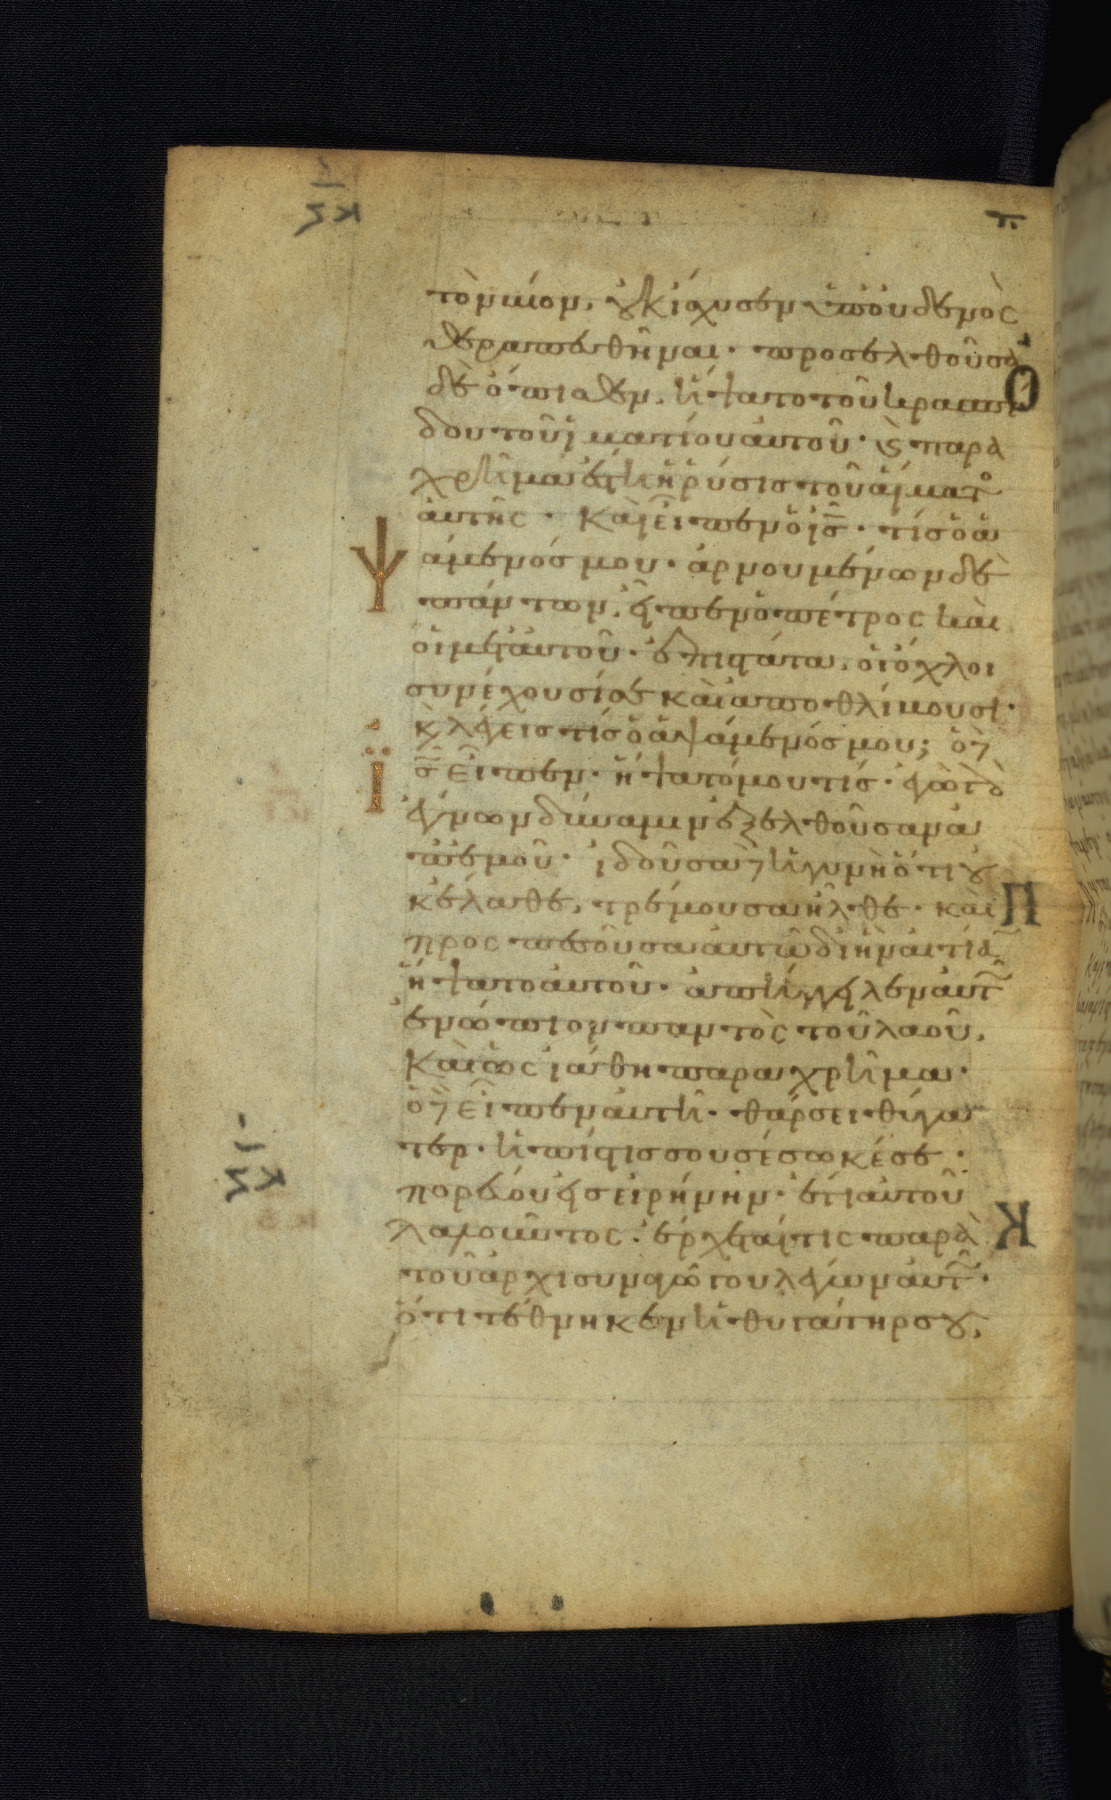 τὸν βίον, οὐκ ἴσχυσεν ὑπ' οὐδενὸς
θεραπευθῆναι· προσελθοῦσα
δὲ ὄπισθεν, ἥψατο τοῦ κρασπέ
δου τοῦ ἱματίου αὐτοῦ· καὶ παρα
χρῆμα ἔστη ἡ ῥύσις τοῦ αἵματο
αὐτῆς· Καὶ εἶπεν ὁ ις· τίς ὁ ἁ
ψάμενός μου· ἀρνουμένων δὲ
πάντων, εἶπεν ὁ πέτρος καὶ
οἱ μετ' αὐτοῦ· ἐπιστάτα, οἱ ὄχλοι
συνέχουσί σε καὶ ἀποθλίβουσι·
κ λέγεις τίς ὁ ἁψάμενός μου; ὁ δὲ
ις εἶπεν· ἥψατό μου τίς· ἐγὼ γὰρ
ἔγνων δύναμιν ἐξελθοῦσαν ἀ
π' ἐμοῦ· ἰδοῦσα δὲ ἡ γυνὴ ὅτι οὐ
κ ἔλαθε, τρέμουσα ἦλθε· καὶ
προσπεσοῦσα αὐτῷ δι' ἣν αἰτίαν
ἥψατο αὐτοῦ· ἀπήγγειλεν αὐτῷ
ἐνώπιον παντὸς τοῦ λαοῦ,
Καὶ ὡς ἰάθη παραχρῆμα·
ὁ δὲ εἶπεν αὐτῇ· θάρσει θύγα
τερ· ἡ πίστις σου σέσωκέ σε·
πορεύου εἰς εἰρήνην· ἔτι αὐτοῦ
λαλοῦντος· ἔρχεταί τις παρὰ
τοῦ ἀρχισυναγώγου λέγων αὐτῷ·
ὅτι τέθνηκεν ἡ θυγάτηρ σου,